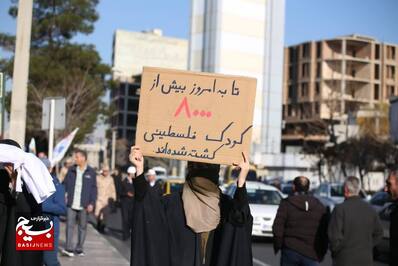 تا به امروز بیش از
۸۰۰۰
کودک فلسطینی
کشته شده‌اند
خبرگزاری
بسیج
BASIJNEWS